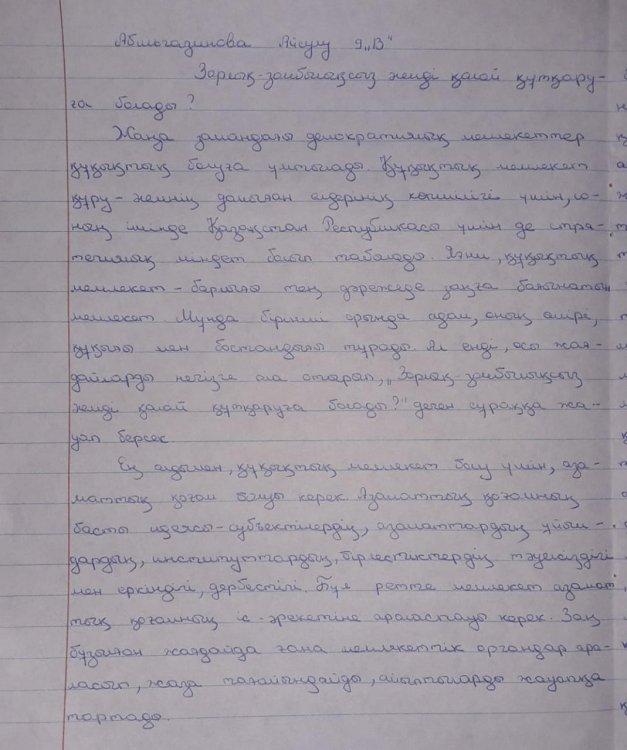 Абылгазинова Айсулу 9 "В"
Зорлық-зомбылықсыз әлемді қалай құтқару-
ға болады?
Жаңа замандағы демократиялық мемлекеттер
құқықтық болуға ұмтылады. Құқықтық мемлекет
құру - әлемнің дамыған елдерінің көпшілігі үшін, со-
ның ішінде Қазақстан Республикасы үшін де стра-
тегиялық міндет болып табылады. Яғни, құқықтық
мемлекет - барлығы тең дәрежеде заңға бағынатын
мемлекет. Мұнда бірінші орында адам, оның өмірі,
құқығы мен бостандығы тұрады. Ал енді, осы жағ-
дайларды негізге ала отырып, "Зорлық-зомбылықсыз
әлемді қалай құтқаруға болады?" деген сұраққа жа-
уап берсек.
Ең алдымен, құқықтық мемлекет болу үшін, аза-
маттық қоғам болуы керек. Азаматтық қоғамның
басты идеясы-субъектілердің, азаматтардың, ұйым-
дардың, институттардың, бірлестіктердің тәуелсіздігі
мен еркіндігі, дербестігі. Бұл ретте мемлекет азамат
тық қоғамның іс-әрекетіне араласпауы керек. Заң
бұзылған жағдайда ғана мемлекеттік органдар ара-
ласып, жаза тағайындайды, айыптыларды жауапқа
тартады.